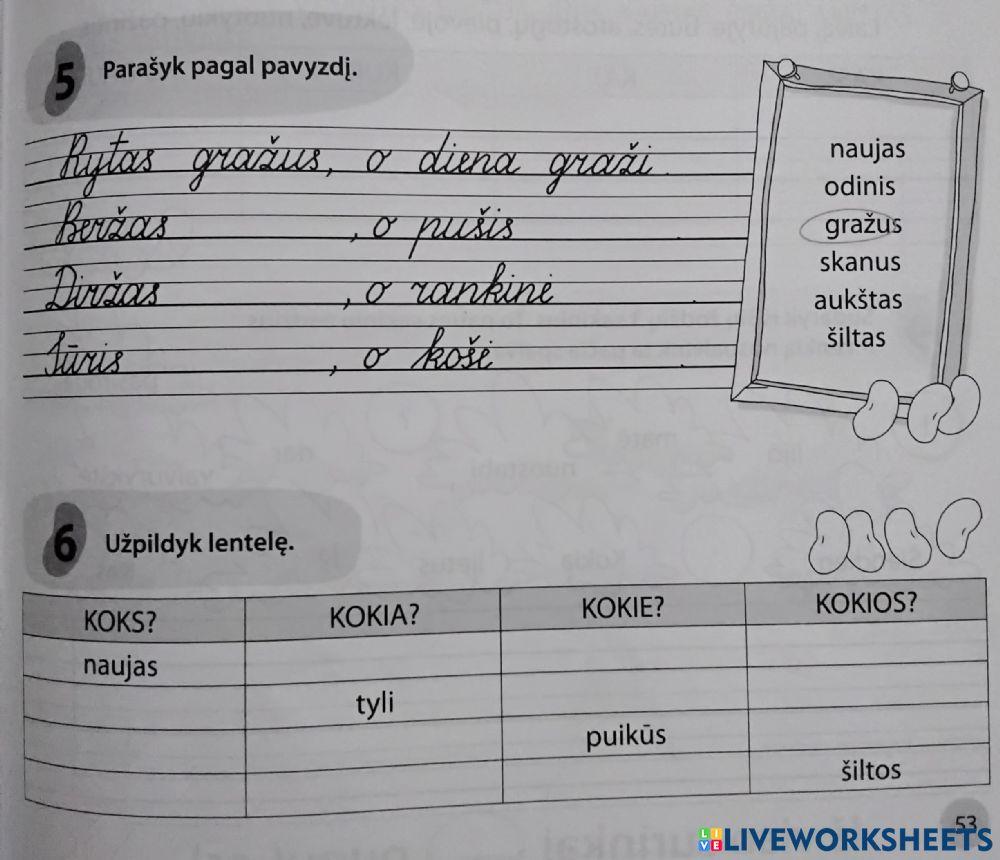 5 Parašyk pagal pavyzdį.
Rytas gražus, o diena graži.
Beržas , o pušis .
Diržas , o rankinė .
Sūris , o košė .
naujas
odinis
gražus
skanus
aukštas
šiltas
6 Užpildyk lentelę.
KOKS? KOKIA? KOKIE? KOKIOS?
naujas
tyli
puikūs
šiltos
53
LIVEWORKSHEETS